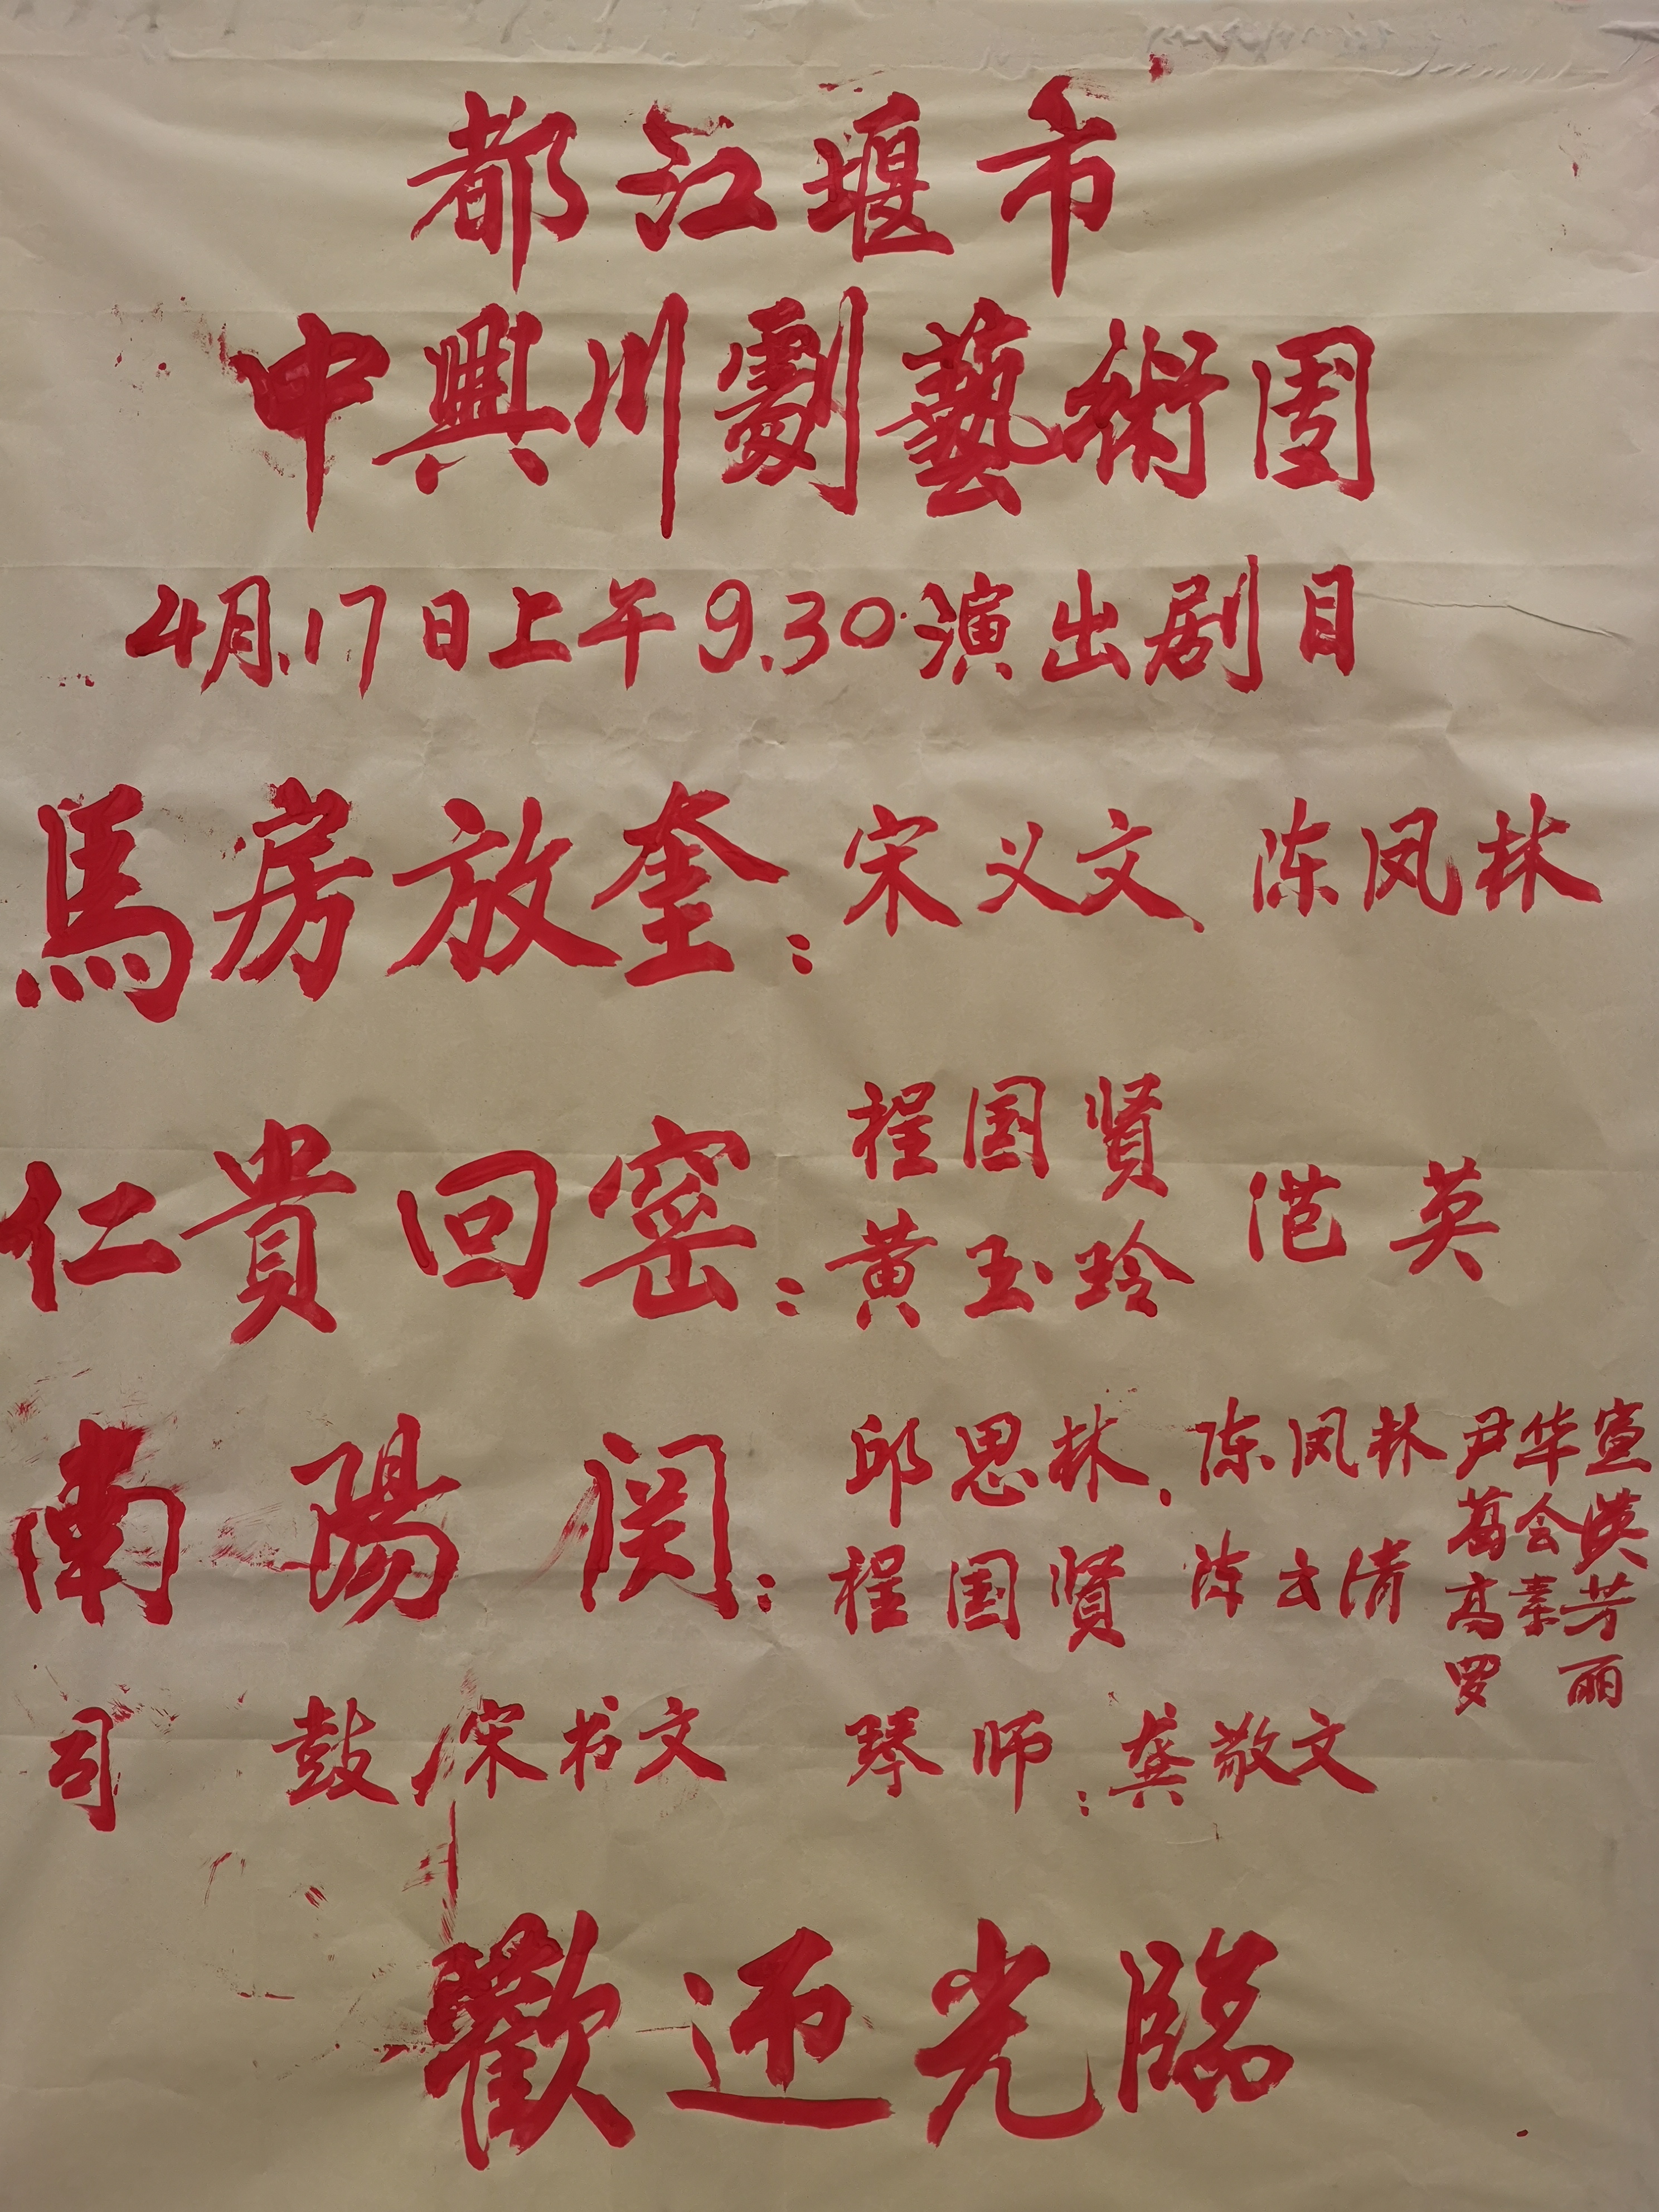 都江堰市
中興川劇藝術团
4月.17日上午9.30演出剧目
馬房放奎：宋义文、陈凤林
仁貴回窑：程国贤 黄玉玲 范英
南陽関：邱思林、陈凤林 尹华宣
程国贤 陈云清 葛会英
高素芳
罗丽
司鼓：宋书文 琴师：龚敬文
歡迎光臨